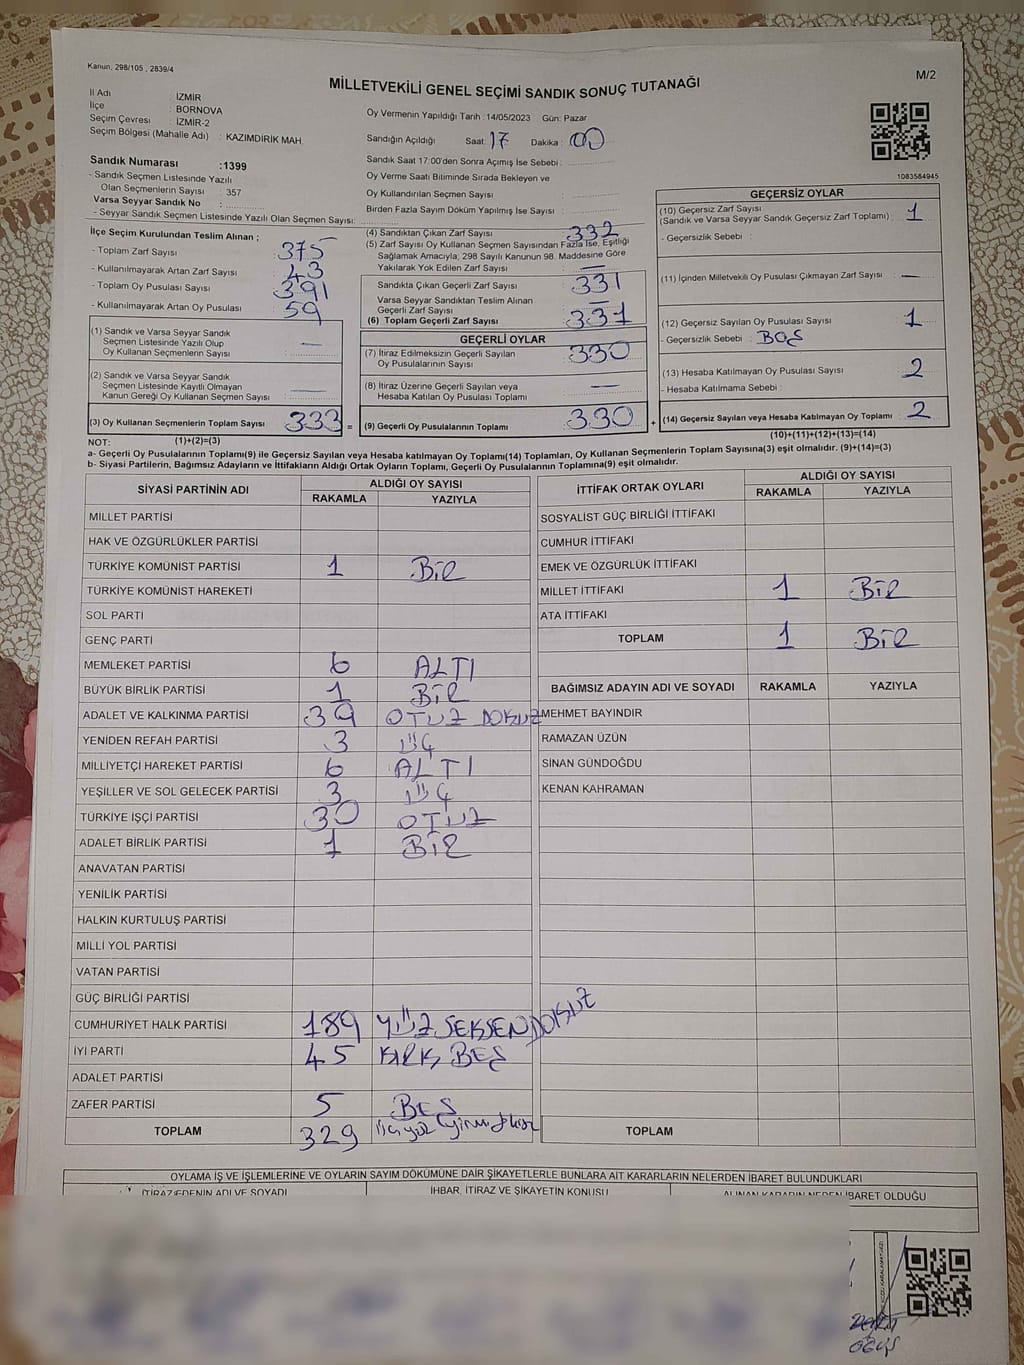 Kanun, 298/105 , 2839/4
M/2
MİLLETVEKİLİ GENEL SEÇİMİ SANDIK SONUÇ TUTANAĞI
İl Adı : İZMİR
İlçe : BORNOVA
Seçim Çevresi : İZMİR-2
Seçim Bölgesi (Mahalle Adı) : KAZIMDİRİK MAH.
Oy Vermenin Yapıldığı Tarih : 14/05/2023 Gün: Pazar
Sandığın Açıldığı Saat: 17 Dakika : 00
Sandık Saat 17:00'den Sonra Açımış İse Sebebi :
Oy Verme Saati Bitiminde Sırada Bekleyen ve
Oy Kullandırılan Seçmen Sayısı :
Birden Fazla Sayım Döküm Yapılmış İse Sayısı :
1083584945
Sandık Numarası :1399
- Sandık Seçmen Listesinde Yazılı
Olan Seçmenlerin Sayısı : 357
Varsa Seyyar Sandık No :
- Seyyar Sandık Seçmen Listesinde Yazılı Olan Seçmen Sayısı:
İlçe Seçim Kurulundan Teslim Alınan ;
- Toplam Zarf Sayısı : 375
- Kullanılmayarak Artan Zarf Sayısı : 43
- Toplam Oy Pusulası Sayısı : 391
- Kullanılmayarak Artan Oy Pusulası : 59
(1) Sandık ve Varsa Seyyar Sandık
Seçmen Listesinde Yazılı Olup
Oy Kullanan Seçmenlerin Sayısı : —
(2) Sandık ve Varsa Seyyar Sandık
Seçmen Listesinde Kayıtlı Olmayan
Kanun Gereği Oy Kullanan Seçmen Sayısı : —
(3) Oy Kullanan Seçmenlerin Toplam Sayısı : 333 =
(1)+(2)=(3)
(4) Sandıktan Çıkan Zarf Sayısı : 332
(5) Zarf Sayısı Oy Kullanan Seçmen Sayısından Fazla İse, Eşitliği
Sağlamak Amacıyla; 298 Sayılı Kanunun 98. Maddesine Göre
Yakılarak Yok Edilen Zarf Sayısı : —
Sandıkta Çıkan Geçerli Zarf Sayısı : 331
Varsa Seyyar Sandıktan Teslim Alınan
Geçerli Zarf Sayısı : —
(6) Toplam Geçerli Zarf Sayısı : 331
GEÇERLİ OYLAR
(7) İtiraz Edilmeksizin Geçerli Sayılan
Oy Pusulalarının Sayısı : 330
(8) İtiraz Üzerine Geçerli Sayılan veya
Hesaba Katılan Oy Pusulası Toplamı : —
(9) Geçerli Oy Pusulalarının Toplamı : 330 +
GEÇERSİZ OYLAR
(10) Geçersiz Zarf Sayısı
(Sandık ve Varsa Seyyar Sandık Geçersiz Zarf Toplamı) : 1
- Geçersizlik Sebebi :
(11) İçinden Milletvekili Oy Pusulası Çıkmayan Zarf Sayısı : —
(12) Geçersiz Sayılan Oy Pusulası Sayısı : 1
- Geçersizlik Sebebi : BOŞ
(13) Hesaba Katılmayan Oy Pusulası Sayısı : 2
- Hesaba Katılmama Sebebi :
(14) Geçersiz Sayılan veya Hesaba Katılmayan Oy Toplamı : 2
(10)+(11)+(12)+(13)=(14)
NOT:
a- Geçerli Oy Pusulalarının Toplamı(9) ile Geçersiz Sayılan veya Hesaba katılmayan Oy Toplamı(14) Toplamları, Oy Kullanan Seçmenlerin Toplam Sayısına(3) eşit olmalıdır. (9)+(14)=(3)
b- Siyasi Partilerin, Bağımsız Adayların ve İttifakların Aldığı Ortak Oyların Toplamı, Geçerli Oy Pusulalarının Toplamına(9) eşit olmalıdır.
SİYASİ PARTİNİN ADI ALDIĞI OY SAYISI
RAKAMLA YAZIYLA
MİLLET PARTİSİ
HAK VE ÖZGÜRLÜKLER PARTİSİ
TÜRKİYE KOMÜNİST PARTİSİ 1 BİR
TÜRKİYE KOMÜNİST HAREKETİ
SOL PARTİ
GENÇ PARTİ
MEMLEKET PARTİSİ 6 ALTI
BÜYÜK BİRLİK PARTİSİ 1 BİR
ADALET VE KALKINMA PARTİSİ 39 OTUZ DOKUZ
YENİDEN REFAH PARTİSİ 3 ÜÇ
MİLLİYETÇİ HAREKET PARTİSİ 6 ALTI
YEŞİLLER VE SOL GELECEK PARTİSİ 3 ÜÇ
TÜRKİYE İŞÇİ PARTİSİ 30 OTUZ
ADALET BİRLİK PARTİSİ 1 BİR
ANAVATAN PARTİSİ
YENİLİK PARTİSİ
HALKIN KURTULUŞ PARTİSİ
MİLLİ YOL PARTİSİ
VATAN PARTİSİ
GÜÇ BİRLİĞİ PARTİSİ
CUMHURİYET HALK PARTİSİ 189 YÜZ SEKSEN DOKUZ
İYİ PARTİ 45 KIRK BEŞ
ADALET PARTİSİ
ZAFER PARTİSİ 5 BEŞ
TOPLAM 329
İTTİFAK ORTAK OYLARI ALDIĞI OY SAYISI
RAKAMLA YAZIYLA
SOSYALİST GÜÇ BİRLİĞİ İTTİFAKI
CUMHUR İTTİFAKI
EMEK VE ÖZGÜRLÜK İTTİFAKI
MİLLET İTTİFAKI 1 BİR
ATA İTTİFAKI
TOPLAM 1 BİR
BAĞIMSIZ ADAYIN ADI VE SOYADI RAKAMLA YAZIYLA
MEHMET BAYINDIR
RAMAZAN ÜZÜN
SİNAN GÜNDOĞDU
KENAN KAHRAMAN
TOPLAM
OYLAMA İŞ VE İŞLEMLERİNE VE OYLARIN SAYIM DÖKÜMÜNE DAİR ŞİKAYETLERLE BUNLARA AİT KARARLARIN NELERDEN İBARET BULUNDUKLARI
İTİRAZ EDENİN ADI VE SOYADI İHBAR, İTİRAZ VE ŞİKAYETİN KONUSU ALINAN KARARIN NEDEN İBARET OLDUĞU